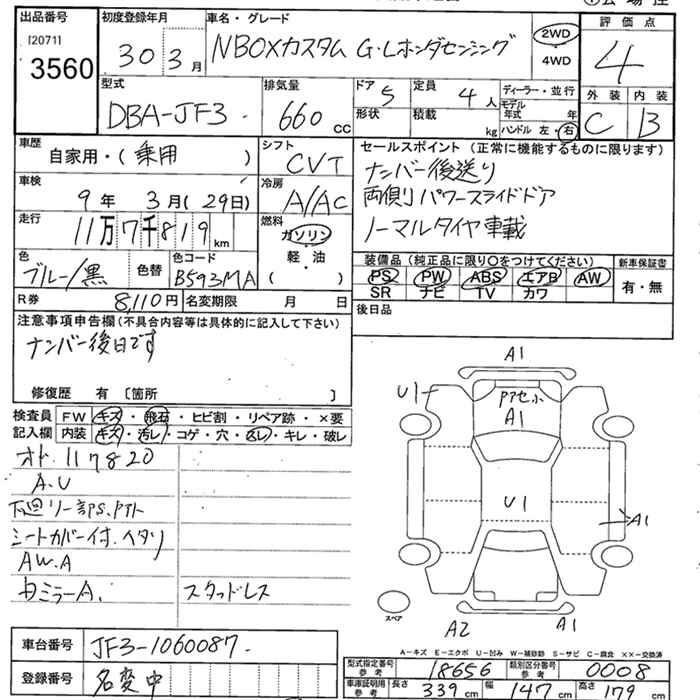 出品番号 初度登録年月 車名・グレード 評価点
[20711]
3560 30年3月 NBOXカスタム G・Lホンダセンシング 2WD 4WD 4
型式 排気量 ドア 定員 ディーラー・並行 外装 内装
DBA-JF3 660 cc 5 4人 モデル年式 年 C B
形状 積載 kg ハンドル 左・右
車歴 シフト セールスポイント(正常に機能するものに限ります)
自家用・(乗用) CVT ナンバー後送り
車検 冷房 両側パワースライドドア
9年3月(29日) A/AC ノーマルタイヤ車載
走行 燃料
11万7千819km ガソリン
軽・油
( )
色 色替 色コード 装備品(純正品に限り○をつけてください) 新車保証書
ブルー/黒 B593MA PS PW ABS エアB AW 有・無
SR ナビ TV カワ
R券 8,110円 名変期限 月 日 後日品
注意事項申告欄(不具合内容等は具体的に記入して下さい)
ナンバー後日です
修復歴 有 [箇所 ]
検査員 FW キズ・飛石・ヒビ割・リペア跡・×要
記入欄 内装 キズ・汚レ・コゲ・穴・凹レ・キレ・破レ
オド 117820
A.U
下廻り一部S.
シートカバー付.ヘタリ
AW.A
カミラーA. スタッドレス
A1
U1
A1
U1
A1
スペア
A2 A1
A-キズ E-エクボ U-凹み W-補修跡 S-サビ C-腐食 ××-交換済
車台番号 JF3-1060087
登録番号 名変中
型式指定番号 参考 18656 類別区分番号 参考 0008
車庫証明用 参考 長さ 339cm 幅 147cm 高さ 179cm